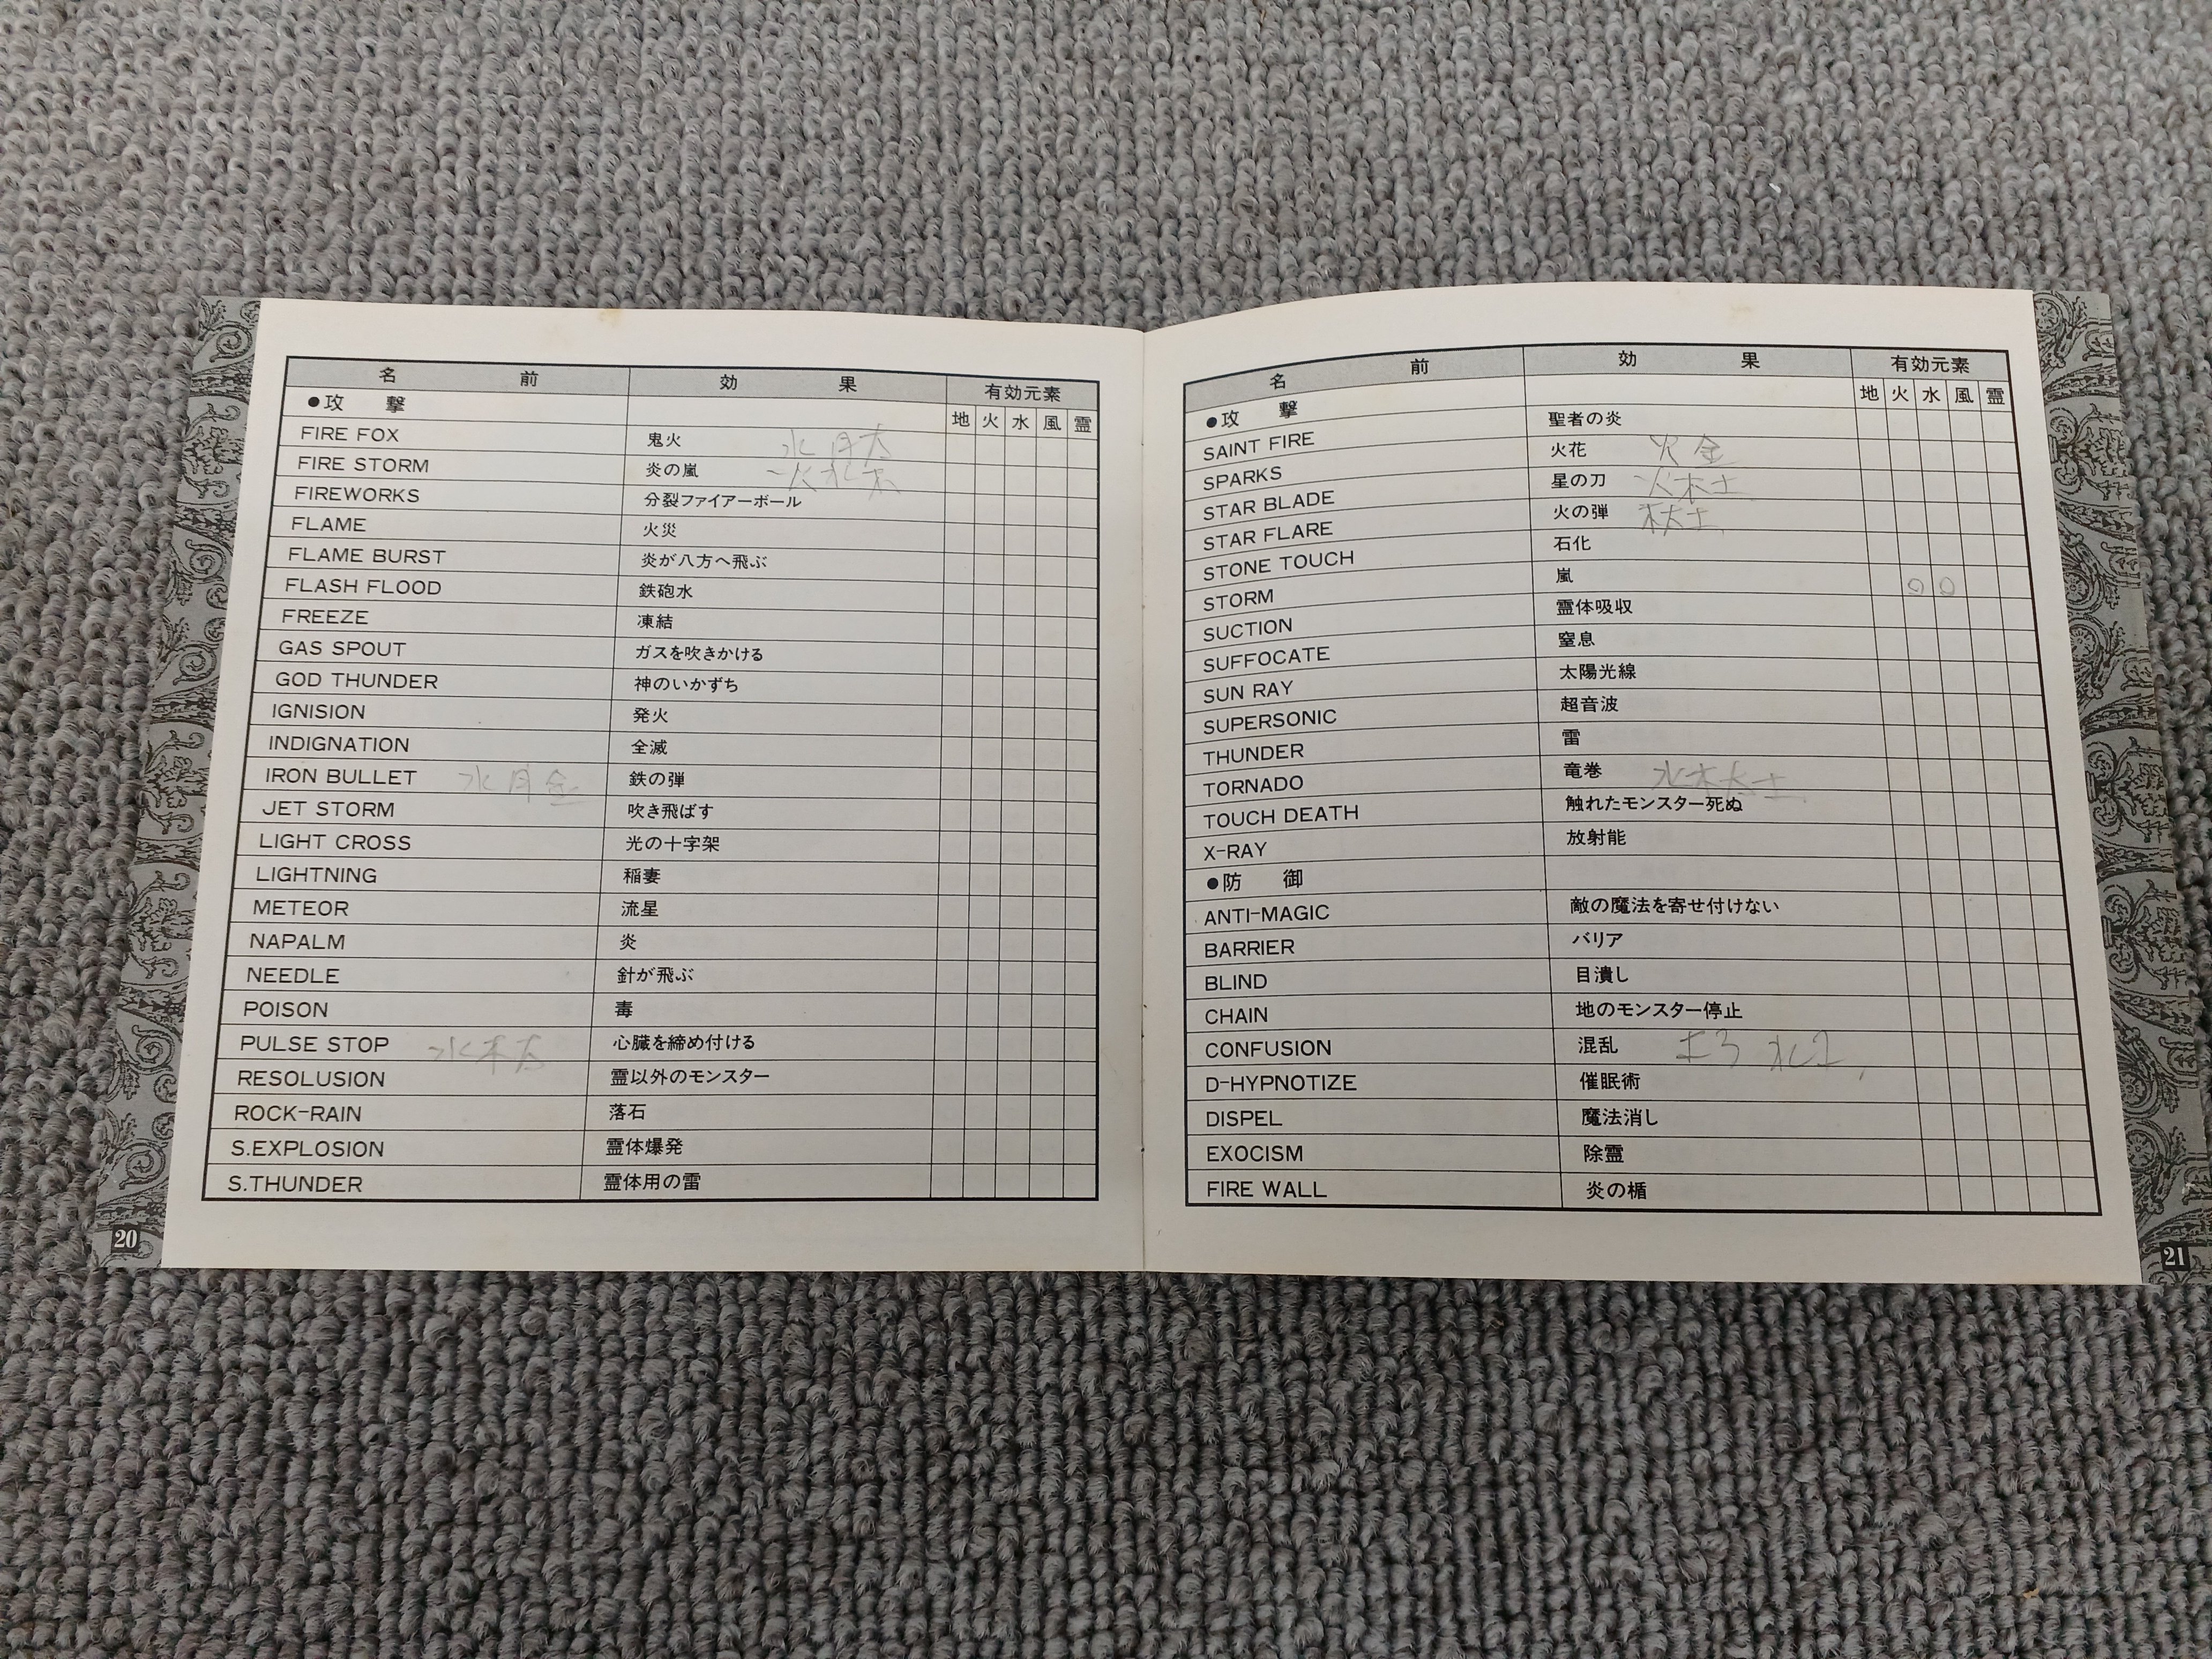 名 前 効 果 有効元素
●攻 撃 地 火 水 風 霊
FIRE FOX 鬼火 水 月 太
FIRE STORM 炎の嵐 火 水 木
FIREWORKS 分裂ファイアーボール
FLAME 火災
FLAME BURST 炎が八方へ飛ぶ
FLASH FLOOD 鉄砲水
FREEZE 凍結
GAS SPOUT ガスを吹きかける
GOD THUNDER 神のいかずち
IGNISION 発火
INDIGNATION 全滅
IRON BULLET 水 月 金 鉄の弾
JET STORM 吹き飛ばす
LIGHT CROSS 光の十字架
LIGHTNING 稲妻
METEOR 流星
NAPALM 炎
NEEDLE 針が飛ぶ
POISON 毒
PULSE STOP 水 木 太 心臓を締め付ける
RESOLUSION 霊以外のモンスター
ROCK-RAIN 落石
S.EXPLOSION 霊体爆発
S.THUNDER 霊体用の雷
20
名 前 効 果 有効元素
●攻 撃 地 火 水 風 霊
SAINT FIRE 聖者の炎
SPARKS 火花 火 金
STAR BLADE 星の刀 火 木 土
STAR FLARE 火の弾 木 太 土
STONE TOUCH 石化
STORM 嵐 ○ ○
SUCTION 霊体吸収
SUFFOCATE 窒息
SUN RAY 太陽光線
SUPERSONIC 超音波
THUNDER 雷
TORNADO 竜巻 水 木 太 土
TOUCH DEATH 触れたモンスター死ぬ
X-RAY 放射能
●防 御
ANTI-MAGIC 敵の魔法を寄せ付けない
BARRIER バリア
BLIND 目潰し
CHAIN 地のモンスター停止
CONFUSION 混乱 土3
D-HYPNOTIZE 催眠術
DISPEL 魔法消し
EXOCISM 除霊
FIRE WALL 炎の楯
21